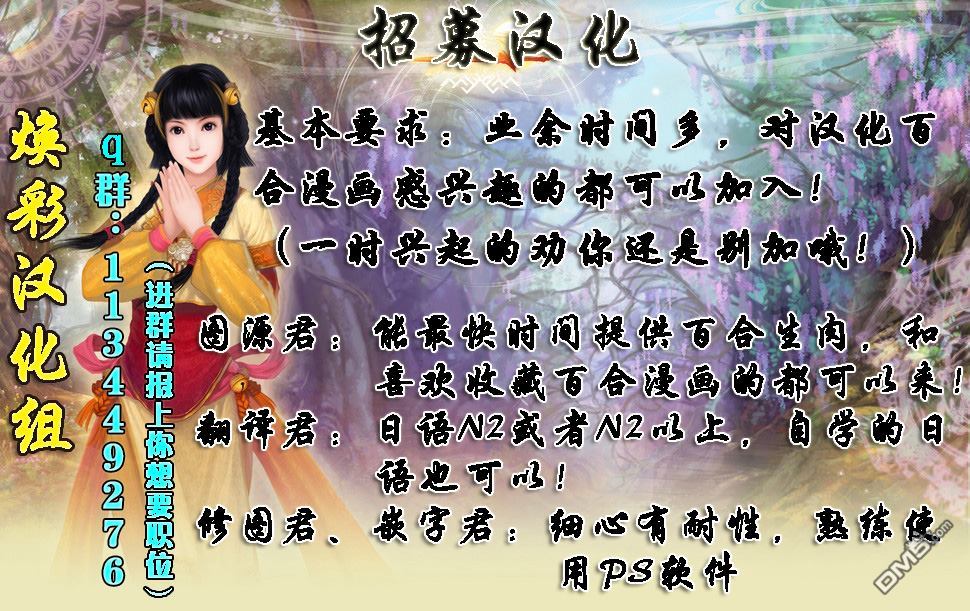 招募汉化
焕彩汉化组
q群：113449276
（进群请报上你想要职位）
基本要求：业余时间多，对汉化百
合漫画感兴趣的都可以加入！
（一时兴起的劝你还是别加哦！）
图源君：能最快时间提供百合生肉，和
喜欢收藏百合漫画的都可以来！
翻译君：日语N2或者N2以上，自学的日
语也可以！
修图君、嵌字君：细心有耐性，熟练使
用PS软件
DM5.com